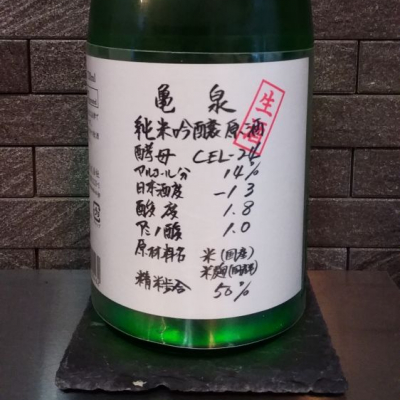 亀 泉
純米吟醸原酒
生酒
酵母 CEL-24
アルコール分 14%
日本酒度 -13
酸度 1.8
アミノ酸 1.0
原材料名 米(国産)
米麹(国産米)
精米歩合 50%